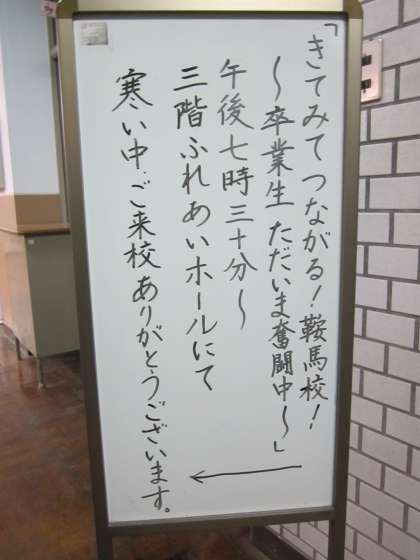 「きてみてつながる!鞍馬校!
〜卒業生 ただいま奮闘中〜」
午後七時三十分〜
三階ふれあいホールにて
寒い中、ご来校ありがとうございます。